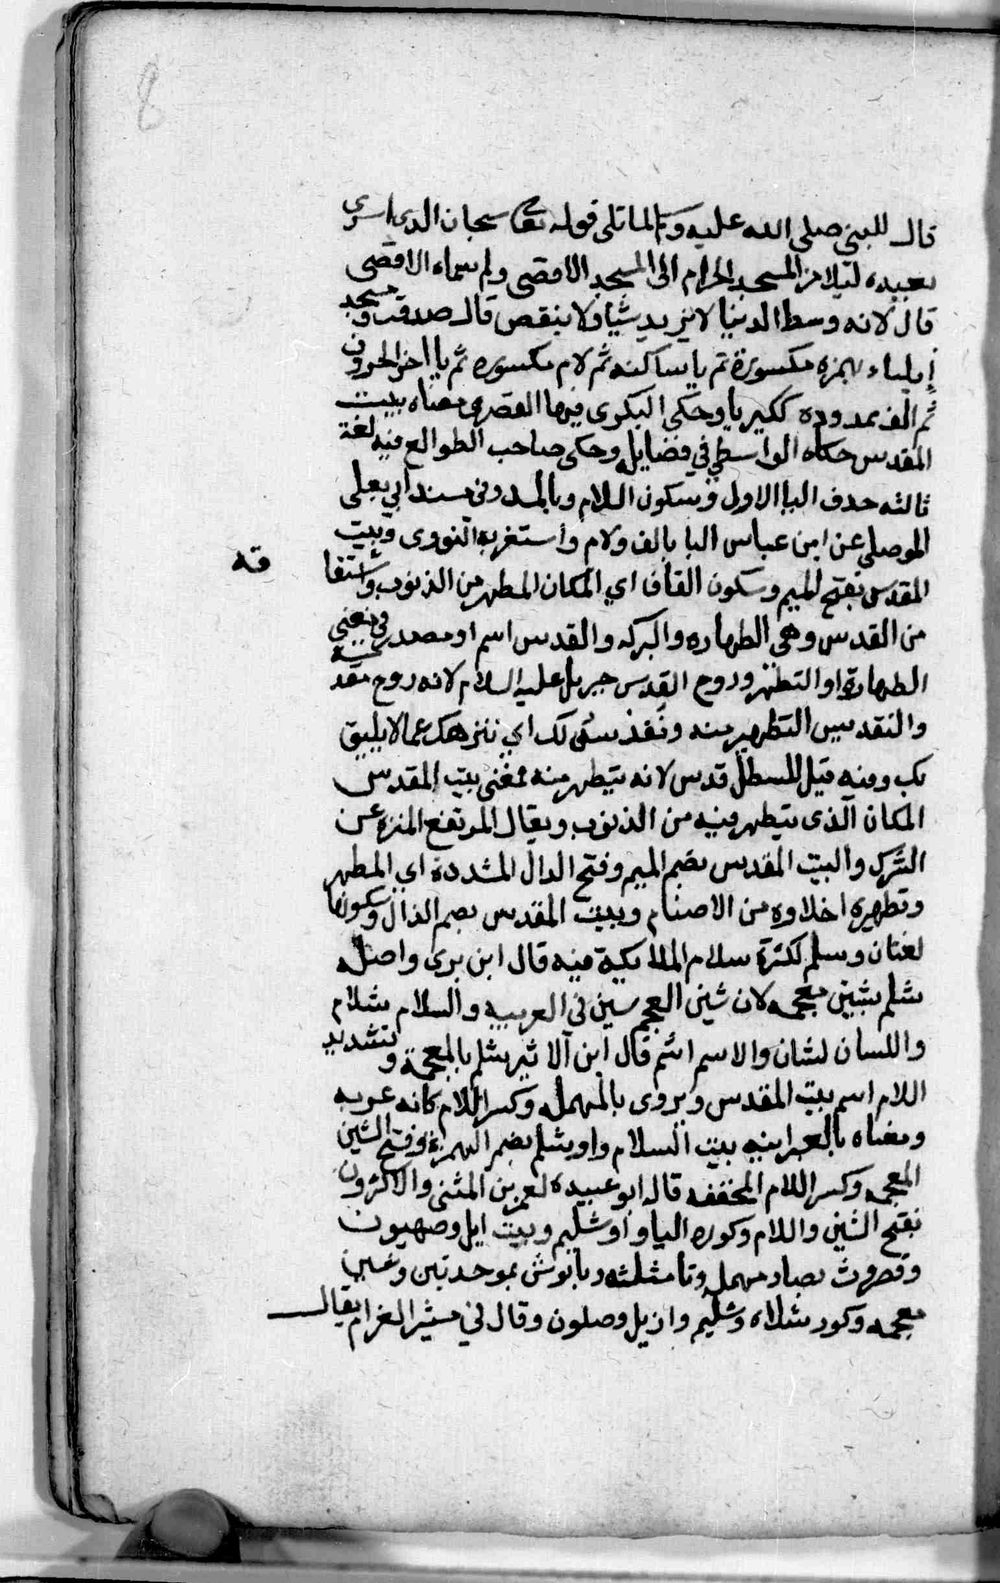 8
قال للنبي صلى الله عليه وسلم لما تلى قوله تعالى سبحان الذي اسرى
بعبده ليلا من المسجد الحرام الى المسجد الاقصى ولم سماه الاقصى
قال لانه وسط الدنيا لا يزيد شيا ولا ينقص قال صدقت ومسجد
إيلياء بهمزة مكسورة ثم يا ساكنه ثم لام مكسوره ثم يا اخر الحروف
ثم الف ممدوده ككبريا وحكى البكري فيها القصر ومعناه بيت
المقدس حكاه الواسطي في فضايله وحكى صاحب الطوالع فيه لغة
ثالثه حدف اليا الاول وسكون اللام وبالمد وفي مسند أبي يعلى
الموصلي عن ابن عباس اليا بالف ولام وأستغربه النووي وبيت
المقدس بفتح الميم وسكون القاف اي المكان المطهر من الذنوب واشتقا
قه
من القدس وهي الطهاره والبركه والقدس اسم او مصدر في معنى
الطهارة او التطهر وروح القدس جبريل عليه السلام لانه روح مقدسة
والتقديس التطهير منه ونقدس لك اي ننزهك عما لا يليق
بك ومنه قيل للسطل قدس لانه يتطهر منه فمعنى بيت المقدس
المكان الذي يتطهر فيه من الذنوب ويقال المرتفع المنزه عن
الشرك والبيت المقدس بضم الميم وفتح الدال المشددة اي المطهر
وتطهيره اخلاوه من الاصنام وبيت المقدس بضم الدال وسكونها
لغتان وسلم لكثرة سلام الملايكة فيه قال ابن بري واصله
شلم بشين معجمه لان شين العجم سين في العربيه والسلام شلام
واللسان لشان والاسم اشم قال ابن الاثير شلم بالمعجمة وتشديد
اللام اسم بيت المقدس ويروى بالمهمله وكسر اللام كانه عربه
ومعناه بالعبرانيه بيت السلام واوريشلم بضم الهمزة وفتح الشين
المعجمه وكسر اللام المخففه قاله ابو عبيده معمر بن المثنى والاكثرون
بفتح الشين واللام وكوره اليا واوشليم وبيت ايل وصهيون
وقصروث بصاد مهمله وثا مثلثه وبابوش بموحدتين وشين
معجمه وكورشلاه وشليم وازيل وصلون وقال في مثير الغرام يقال